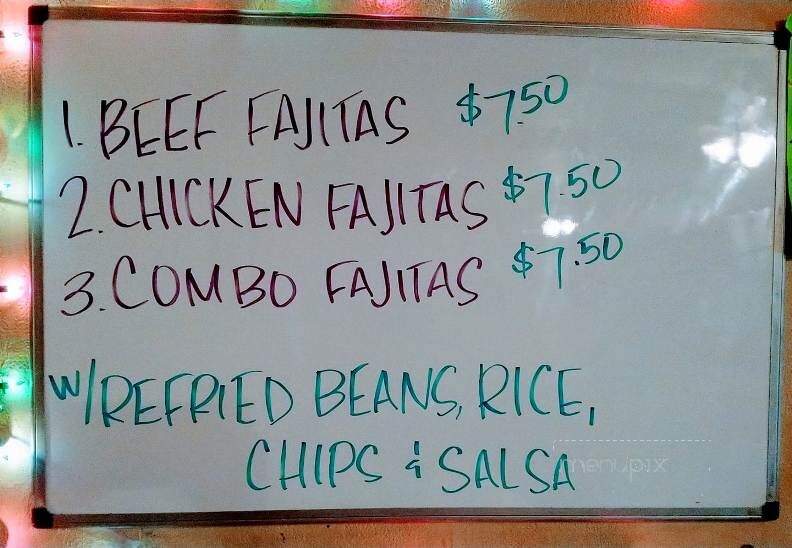 1. BEEF FAJITAS $7.50
2. CHICKEN FAJITAS $7.50
3. COMBO FAJITAS $7.50
W/REFRIED BEANS, RICE,
CHIPS & SALSA
menupix